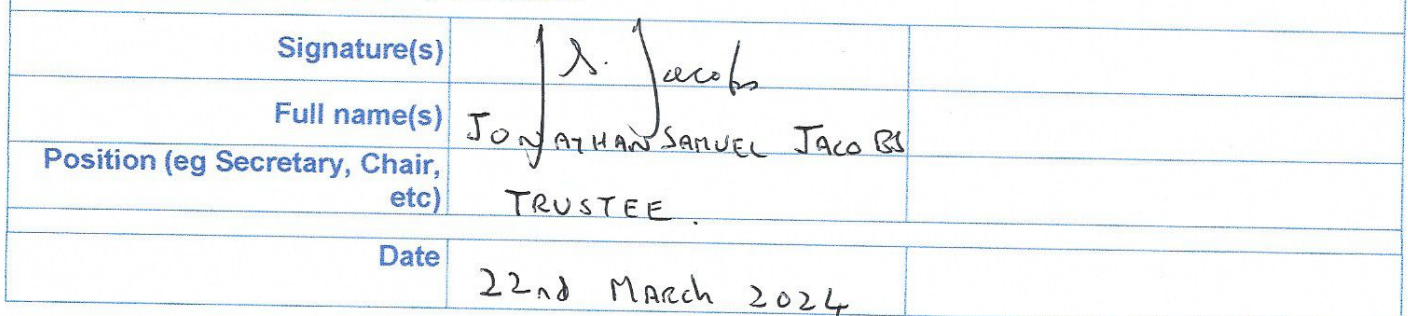 Signature(s) J S. Jacobs
Full name(s) JONATHAN SAMUEL JACOBS
Position (eg Secretary, Chair,
etc) TRUSTEE.
Date 22nd MARCh 2024